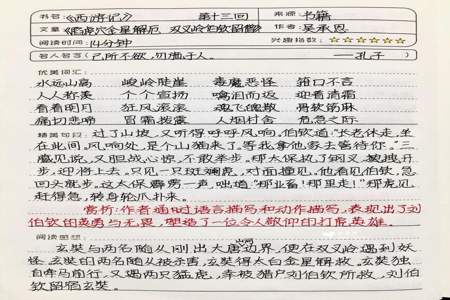 书名:《西游记》 第十三回 来源:书籍
文章《陷虎穴金星解厄 双叉岭伯钦留僧》 作者:吴承恩
阅读时间:14分钟 兴趣指数:☆☆☆☆☆☆
名人名言:己所不欲,勿施于人。——孔子
优美词汇:
水远山高 峻岭陡崖 毒魔恶怪 箝口不言
人人称羡 个个宣扬 嘴泪而返 迎着清霜
看着明月 狂风滚滚 魂飞魄散 骨软筋麻
痛切悲啼 冒霜拨露 人烟村舍 危急之际
精美句段:过了山坡,又听得呼呼风响,伯钦道"长老休走,坐
在此间,风响处,是个山猫来了,等我拿他家去管待你。"三
藏见说,又胆战心惊,不敢举步。那太保执了钢叉,拽步
步,迎将上去。只见一只斑斓虎,对面撞见,他看见伯钦,急
回头就走。这太保霹雳一声,咄道"那业畜!那里走!"那虎见
赶得急,转身轮爪扑来。
赏析:作者通过语言描写和动作描写,表现出了刘
伯钦的英勇与无畏,塑造了一位令人敬仰的打虎英雄。
阅读感想:
玄奘与两名随从刚出大唐边界,便在双叉岭遇到妖
怪。玄奘的两名随从被杀害,玄奘得太白金星解救。玄奘独
自牵马前行,又遇两只猛虎,幸被猎户刘伯钦所救,刘伯
钦留宿玄奘。